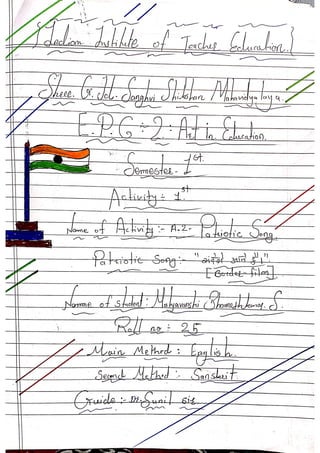 {Indian Institute of Teacher Education.}
Shree. G. H. Sanghvi Shikshan Mahavidyalaya.
E.P.C:-2:- Art in Education.
Semester- 1st.
Activity:- 1st
Name of Activity:- A.2- Patriotic Song.
Patriotic Song:- "संदेशे आते है।"
[Border-film]
Name of student: Bhameshkumar. S.
Roll no:- 25
Main Method: English
Second Method:- Sanskrit
Guide:- Dr. Sunil sir.